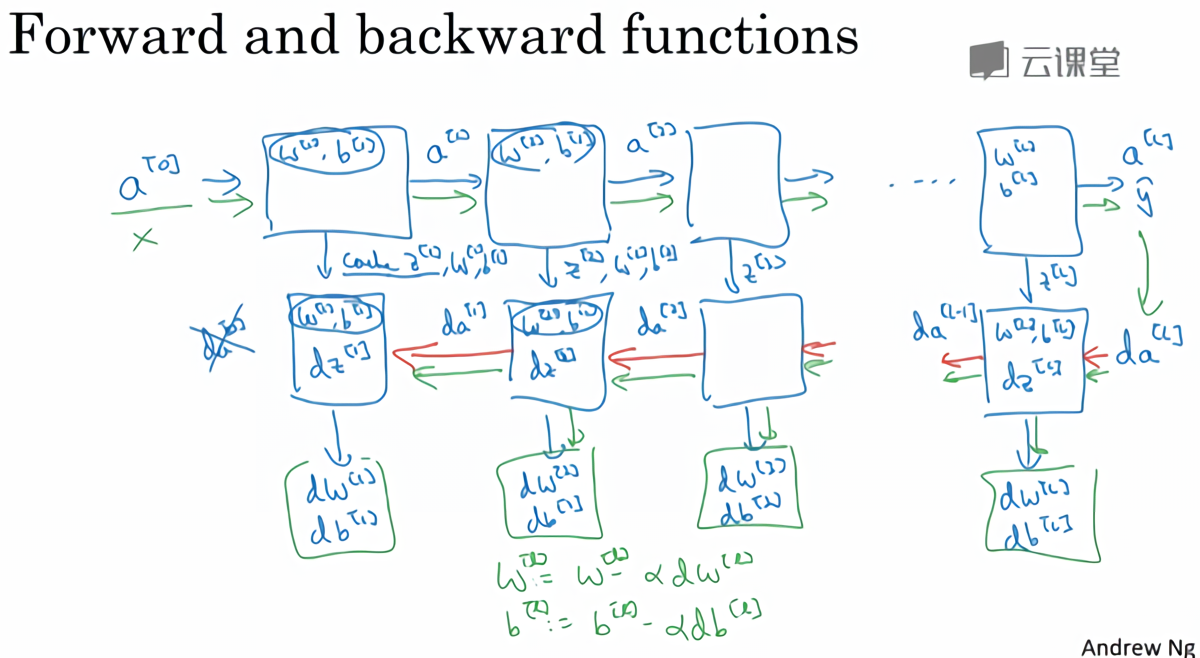 Forward and backward functions
云课堂
a^[0] w^[1], b^[1] a^[1] w^[2], b^[2] a^[2] w^[L] a^[L]
b^[L] ŷ
x
cache z^[1], w^[1], b^[1] z^[2], w^[2], b^[2] z^[3] z^[L]
da^[0] w^[1], b^[1] da^[1] w^[2], b^[2] da^[2] da^[L-1] w^[L], b^[L] da^[L]
dz^[1] dz^[2] dz^[L]
dw^[1] dw^[2] dw^[3] dw^[L]
db^[1] db^[2] db^[3] db^[L]
w^[l] := w^[l] - αdw^[l]
b^[l] := b^[l] - αdb^[l]
Andrew Ng